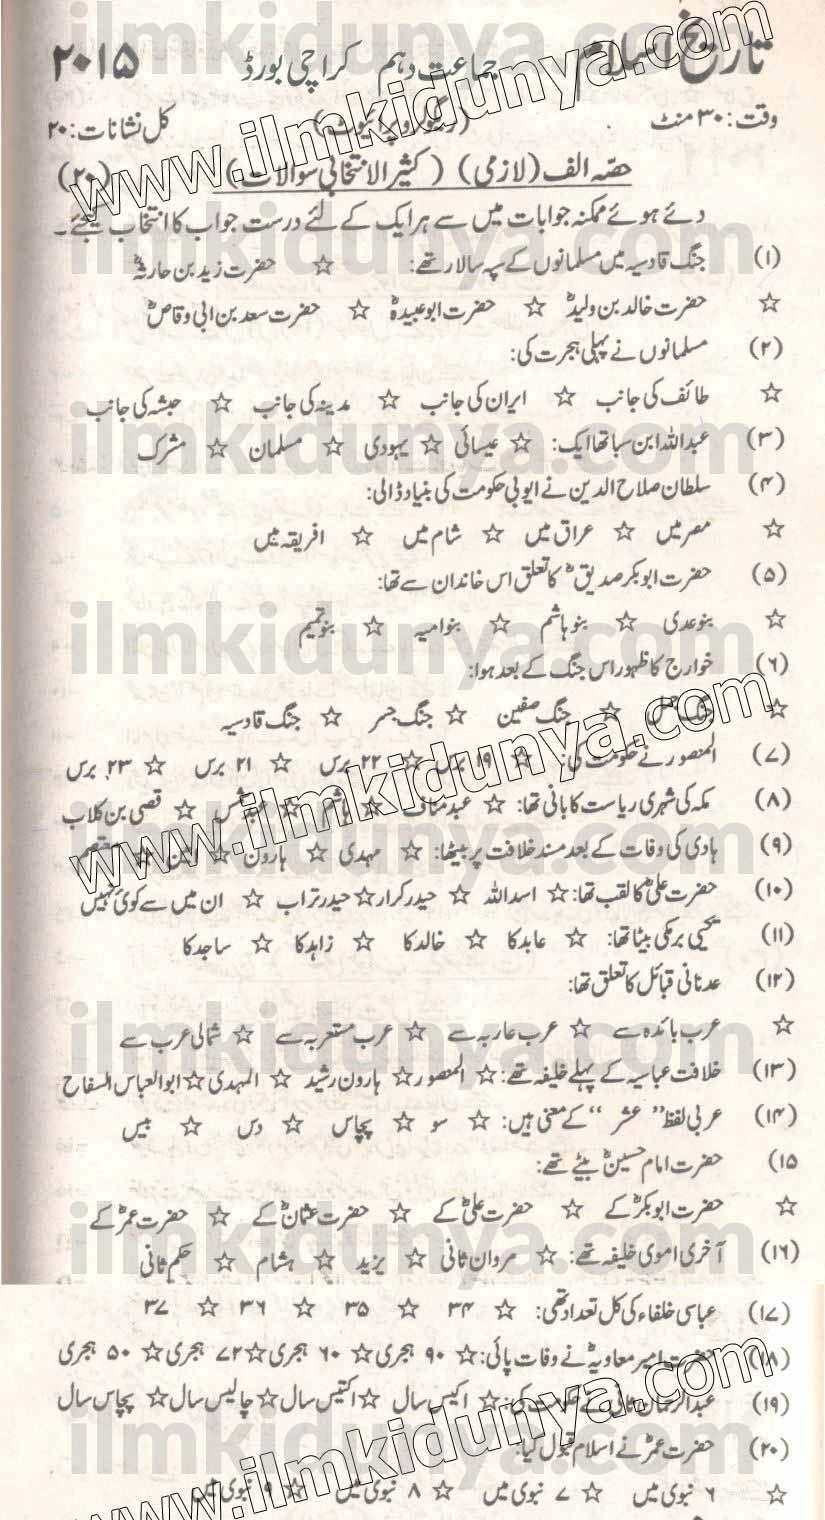 تاریخ اسلام جماعت دہم کراچی بورڈ ۲۰۱۵
وقت: ۳۰ منٹ (ریگولر و پرائیوٹ) کل نشانات: ۲۰
حصہ الف (لازمی) (کثیر الانتخابی سوالات) (۲۰)
دئے ہوئے ممکنہ جوابات میں سے ہر ایک کے لئے درست جواب کا انتخاب کیجئے۔
(۱) جنگ قادسیہ میں مسلمانوں کے سپہ سالار تھے: ☆ حضرت زید بن حارثہؓ
☆ حضرت خالد بن ولیدؓ ☆ حضرت ابو عبیدہؓ ☆ حضرت سعد بن ابی وقاصؓ
(۲) مسلمانوں نے پہلی ہجرت کی:
☆ طائف کی جانب ☆ ایران کی جانب ☆ مدینہ کی جانب ☆ حبشہ کی جانب
(۳) عبداللہ ابن سبا تھا ایک: ☆ عیسائی ☆ یہودی ☆ مسلمان ☆ مشرک
(۴) سلطان صلاح الدین نے ایوبی حکومت کی بنیاد ڈالی:
☆ مصر میں ☆ عراق میں ☆ شام میں ☆ افریقہ میں
(۵) حضرت ابوبکر صدیقؓ کا تعلق اس خاندان سے تھا:
☆ بنو عدی ☆ بنو ہاشم ☆ بنو امیہ ☆ بنو تمیم
(۶) خوارج کا ظہور اس جنگ کے بعد ہوا:
☆ جنگ جمل ☆ جنگ صفین ☆ جنگ جسر ☆ جنگ قادسیہ
(۷) المنصور نے حکومت کی: ☆ ۱۹ برس ☆ ۲۲ برس ☆ ۲۱ برس ☆ ۲۳ برس
(۸) مکہ کی شہری ریاست کا بانی تھا: ☆ عبد مناف ☆ ہاشم ☆ عبد شمس ☆ قصی بن کلاب
(۹) ہادی کی وفات کے بعد مسند خلافت پر بیٹھا: ☆ مہدی ☆ ہارون ☆ امین ☆
(۱۰) حضرت علیؓ کا لقب تھا: ☆ اسد اللہ ☆ حیدر کرار ☆ حیدر تراب ☆ ان میں سے کوئی نہیں
(۱۱) یحیی برمکی بیٹا تھا: ☆ عابد کا ☆ خالد کا ☆ زاہد کا ☆ ساجد کا
(۱۲) عدنانی قبائل کا تعلق تھا:
☆ عرب بائدہ سے ☆ عرب عاربہ سے ☆ عرب مستعربہ سے ☆ شمالی عرب سے
(۱۳) خلافت عباسیہ کے پہلے خلیفہ تھے: ☆ المنصور ☆ ہارون رشید ☆ المہدی ☆ ابو العباس السفاح
(۱۴) عربی لفظ "عشر" کے معنی ہیں: ☆ سو ☆ پچاس ☆ دس ☆ بیس
(۱۵ حضرت امام حسینؓ بیٹے تھے:
☆ حضرت ابوبکرؓ کے ☆ حضرت علیؓ کے ☆ حضرت عثمانؓ کے ☆ حضرت عمرؓ کے
(۱۶) آخری اموی خلیفہ تھے: ☆ مروان ثانی ☆ یزید ☆ ہشام ☆ حکم ثانی
(۱۷) عباسی خلفاء کی کل تعداد تھی: ☆ ۳۴ ☆ ۳۵ ☆ ۳۶ ☆ ۳۷
(۱۸) حضرت امیر معاویہؓ نے وفات پائی: ☆ ۹۰ ہجری ☆ ۶۰ ہجری ☆ ۷۲ ہجری ☆ ۵۰ ہجری
(۱۹) عبدالرحمان ثانی نے حکومت کی: ☆ اکیس سال ☆ اکتیس سال ☆ چالیس سال ☆ پچاس سال
(۲۰) حضرت عمرؓ نے اسلام قبول کیا:
☆ ۶ نبوی میں ☆ ۷ نبوی میں ☆ ۸ نبوی میں ☆ ۹ نبوی میں
ilmkidunya.com
www.ilmkidunya.com